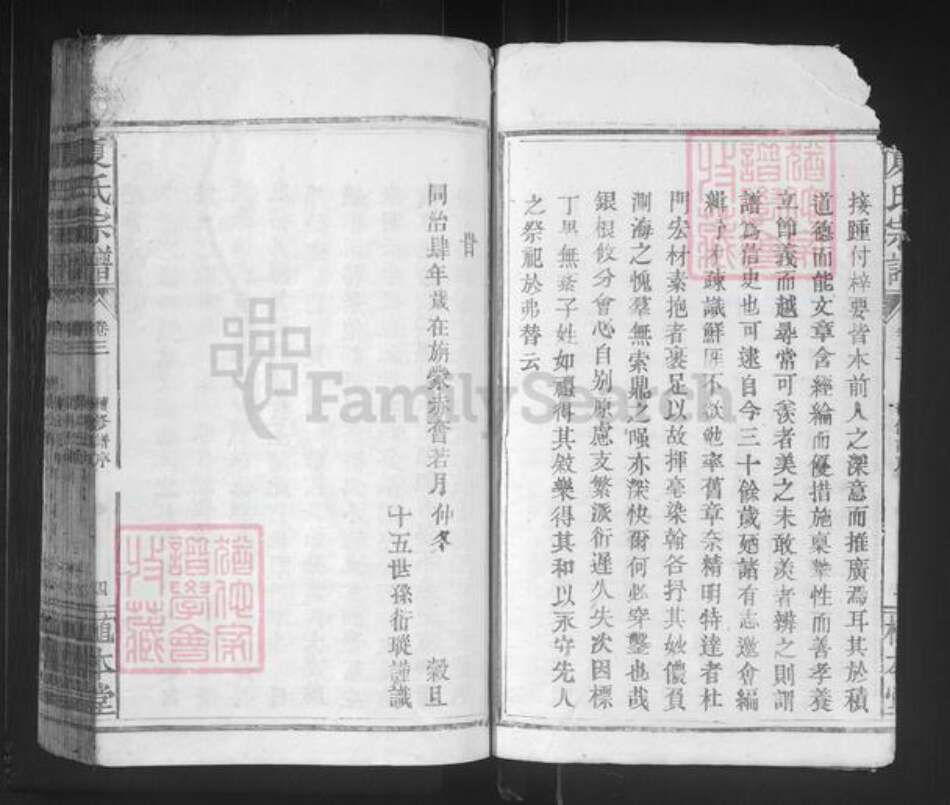 接踵付梓要皆本前人之深意而推廣焉耳其於積
道德而能文章含經綸而優措施稟 性而善孝養
立節義而越尋常可羨者美之未敢羨者辨之則謂
譜為信史也可逮自今三十餘歲廼諸有志邀會編
緝予才疎識鮮 不欲勉率舊章奈精明特達者杜
門宏材素抱者裹足以故揮毫染翰各抒其 儂負
測海之愧羣無索鼎之嘆亦深快爾何必穿鑿也哉
銀根攸分會心自別原慮支繁派衍遲久失次因標
丁男無紊子姓如禮得其敘樂得其和以永守先人
之祭祀於弗替云
旹
同治肆年歲在旃蒙赤奮若月仲冬 穀旦
十五世孫衍璇謹識
夏氏宗譜 卷三 修譜序 四 植本堂
夏氏宗譜
猶他家譜學會收藏
猶他家譜學會收藏
FamilySearch